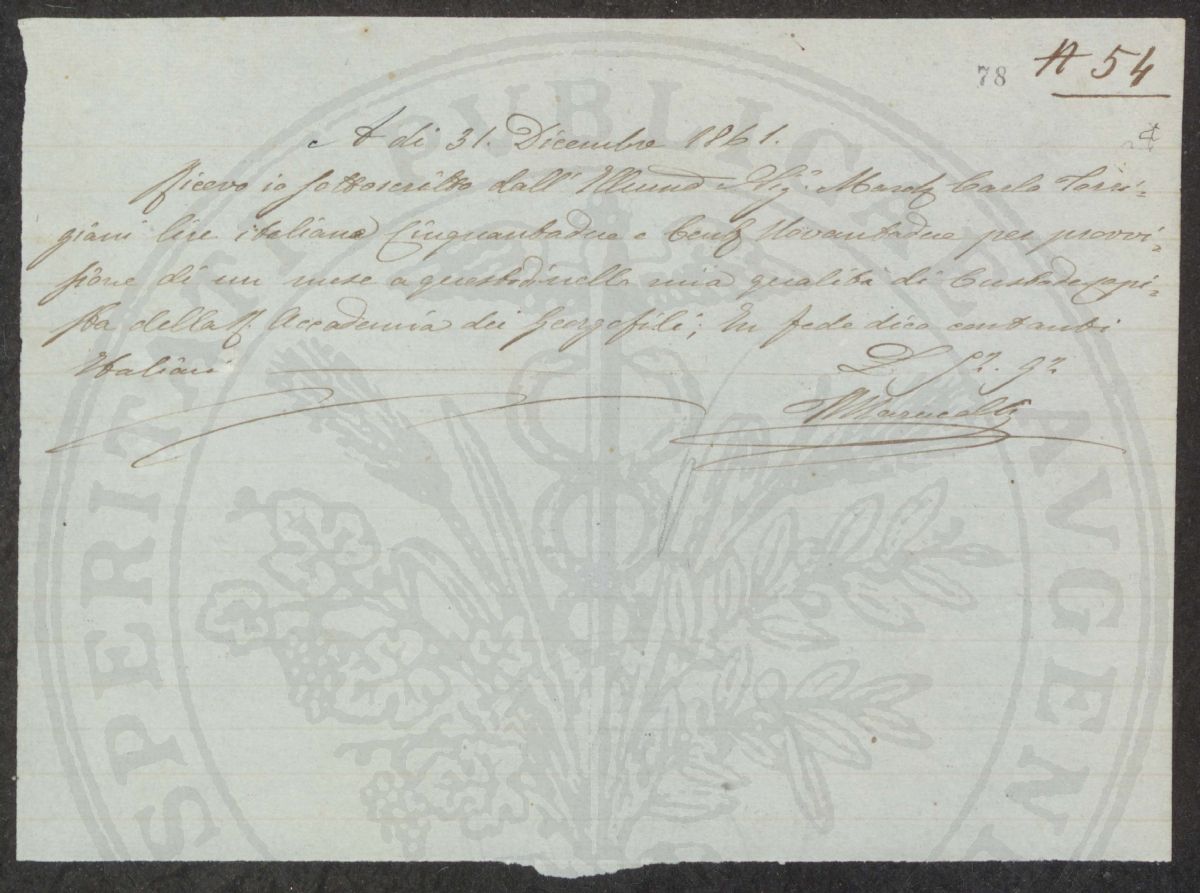 78 A 54
A di 31. Dicembre 1861.
Ricevo io sottoscritto dall' Illmo Sig.r Marchz Carlo Torri-
giani lire italiane Cinquantadue e Centz Novantadue per provvi-
sione di un mese a questo dì nella mia qualità di Custode copi-
sta della R. Accademia dei Georgofili; In fede dico contanti
Italiani
L. 52. 92
PROSPERITATI PUBLICAE AVGENDAE